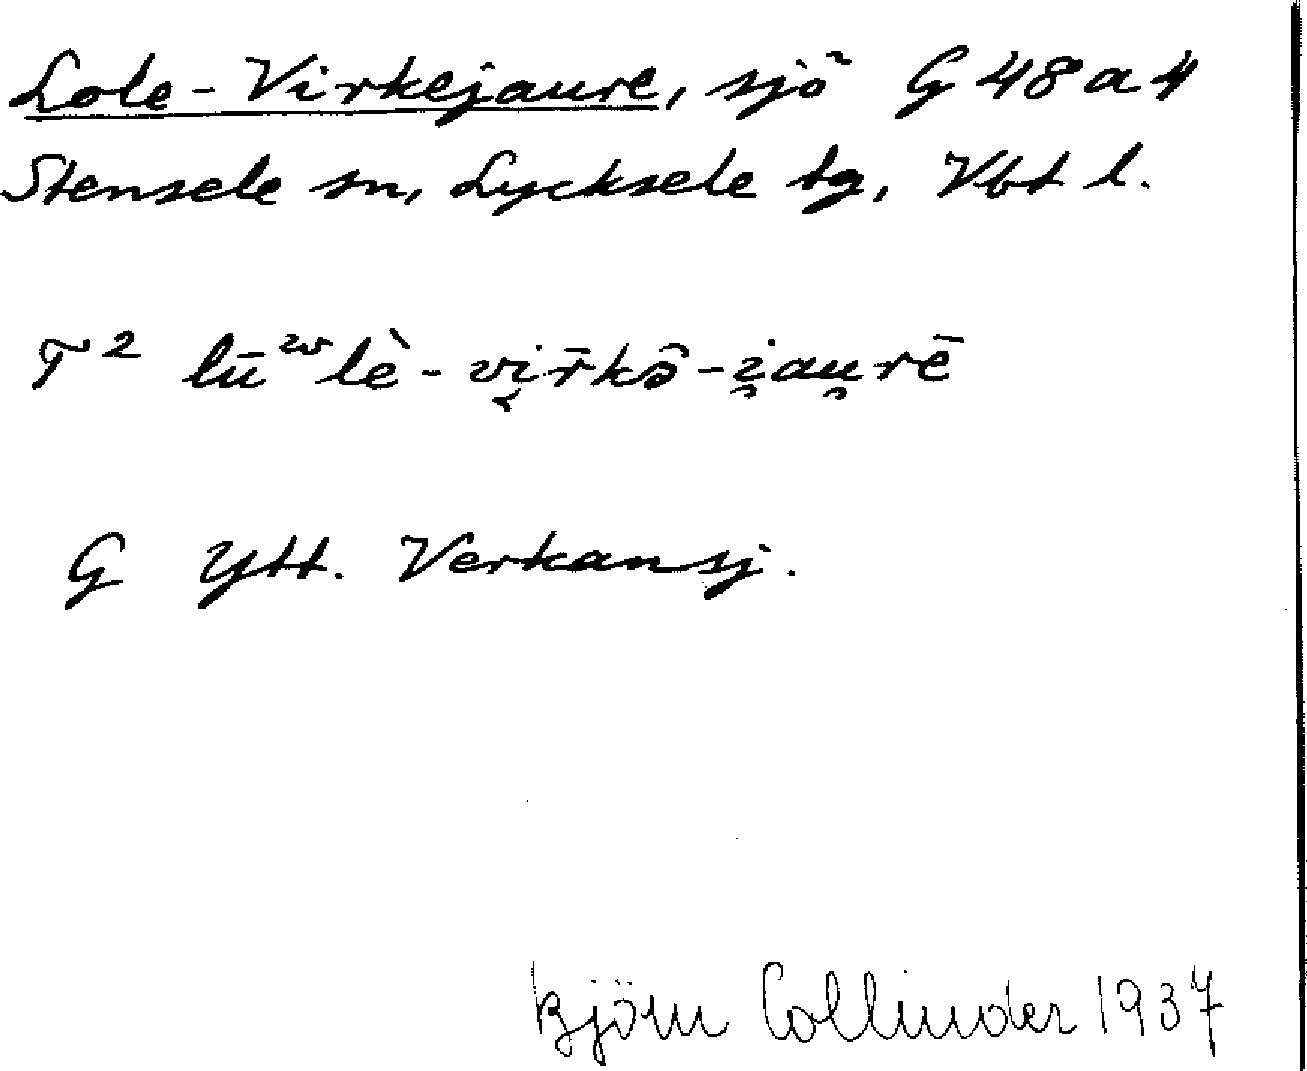 Lole-Virkejaure, sjö G 48 a 4
Stensele sn, Lycksele tg, Vbt l.
T² lūʷlè-vi̮r̄kə̑-i̯au̯rē
G Ytt. Verkansj.
Björn Collinder 1937